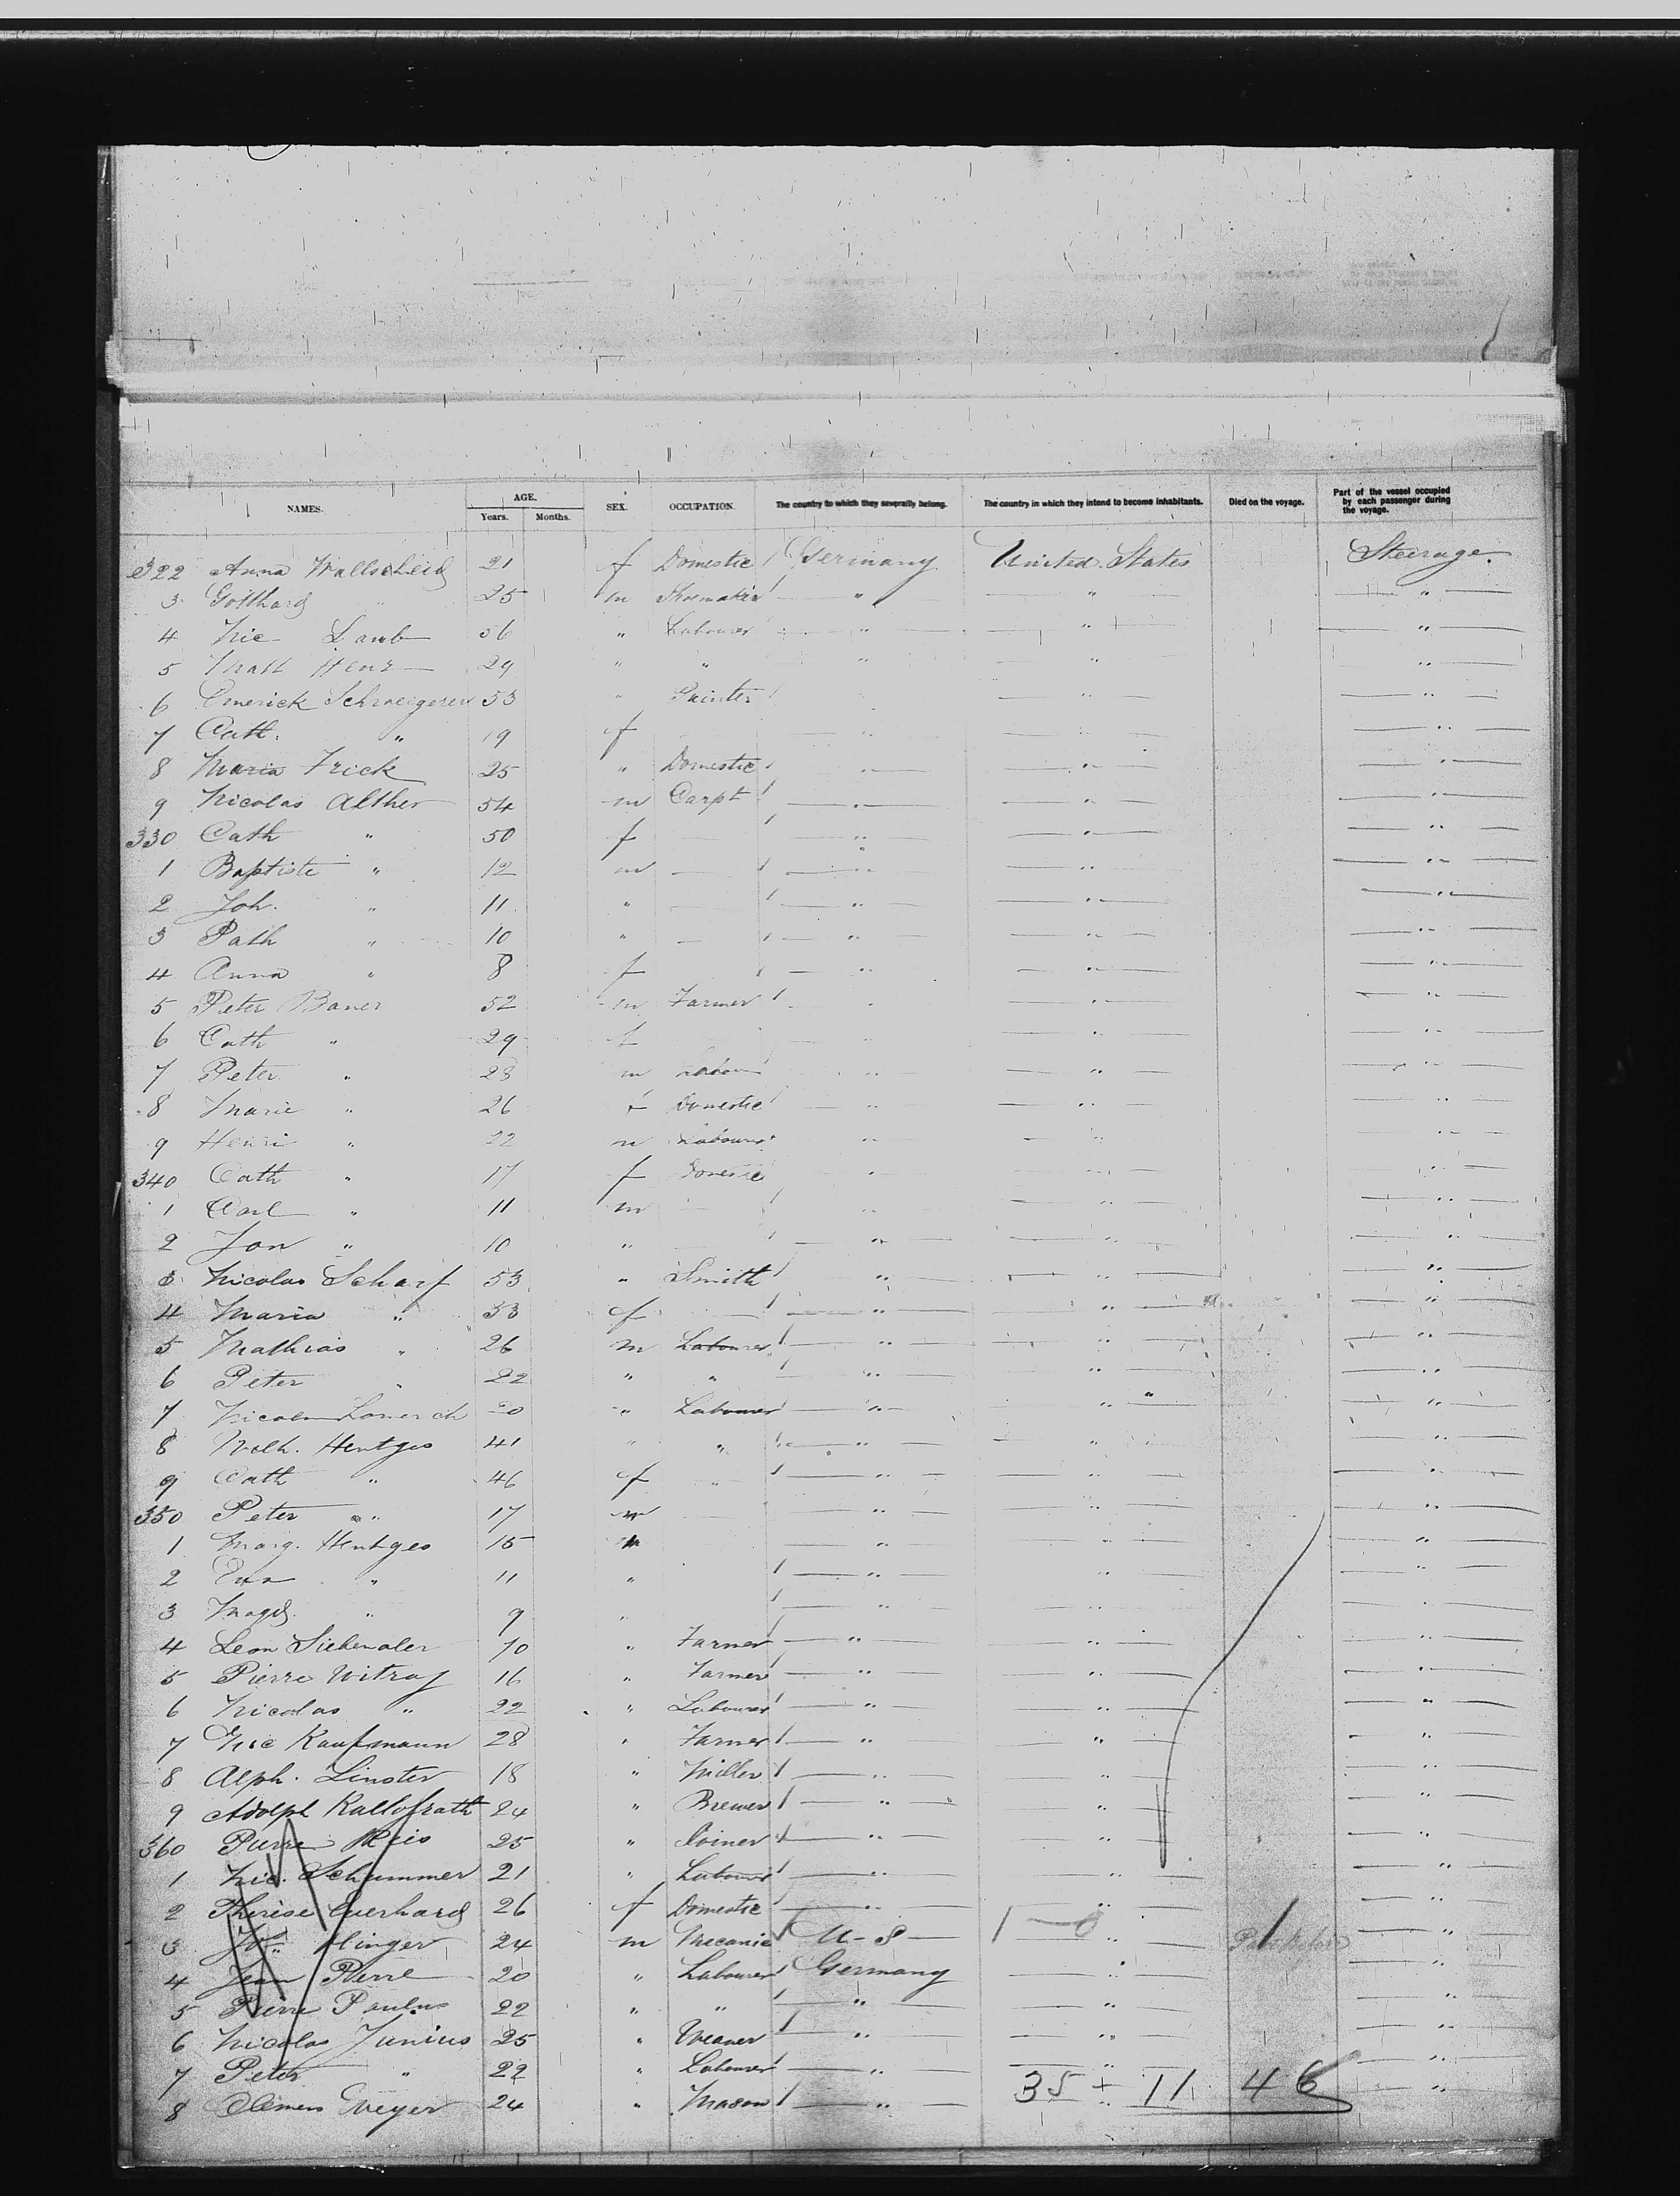 NAMES. AGE. Years. Months. SEX. OCCUPATION. The country to which they severally belong. The country in which they intend to become inhabitants. Died on the voyage. Part of the vessel occupied by each passenger during the voyage.
322 Anna Wallscheid 21 f Domestic Germany United States Steerage
3 Gotthard " 25 m Shoemaker " " "
4 Nic Laub 56 " Labourer " " "
5 Matt Henz 29 " " " " "
6 Emerick 53 " Painter " "
7 Cath. " 19 f " " "
8 Maria Frick 25 " Domestic " " "
9 Nicolas Alther 54 m Carpt " " "
330 Cath " 50 f " " "
1 Baptiste " 12 m " " "
2 Joh. " 11 " " " "
3 Path " 10 " " " "
4 Anna " 8 f " " "
5 Peter Bauer 52 m Farmer " " "
6 Cath " 29 f " " "
7 Peter " 28 m Labour " " "
8 Marie " 26 f Domestic " " "
9 Henri " 22 m Labourer " " "
340 Cath " 17 f Domestic " " "
1 Carl " 11 m " " "
2 Jon " 10 " " " "
3 Nicolas Scharf 53 " Smith " " "
4 Maria " 53 f " " "
5 Mathias " 26 m Labourer " " "
6 Peter " 22 " " " " "
7 Nicolas " Labourer " " "
8 Hentges 41 " " " " "
9 Cath " 46 f " " " "
350 Peter " 17 m " " "
1 Marg. Hentges 15 " " "
2 Eva " 11 " " " "
3 Magd. " 9 " " " "
4 Leon Siebenaler 70 " Farmer " " "
5 Pierre Witray 16 " Farmer " " "
6 Nicolas " 22 " Labourer " " "
7 Nic Kaufmann 28 " Farmer " " "
8 Alph. Linster 18 " Miller " " "
9 Adolph 24 " Brewer " " "
360 Pierre Reis 25 " Joiner " " "
1 Nic. Schummer 21 " Labour " " "
2 Therese Everhard 26 f Domestic " " "
3 24 m Mecanic U-S 1 " 1 "
4 Jean Pierre 20 " Labourer Germany " "
5 Pierre Paulus 22 " " " " "
6 Nicolas Junius 25 " Weaver " " "
7 Peter " 22 " Labourer " " "
8 Clemens 24 " Mason " " "
35 + 11 46